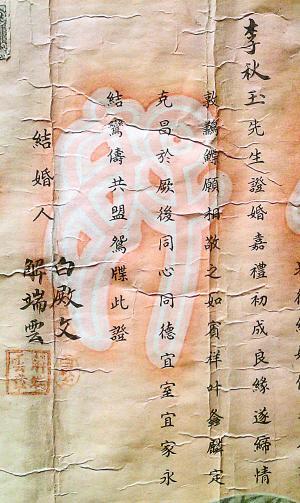 李秋玉先生證婚嘉禮初成良緣遂締情
敦鶼鰈願相敬之如賓祥叶螽麟定
克昌於厥後同心同德宜室宜家永
結鸞儔共盟鴛牒此證
結婚人
白殿文
解端雲